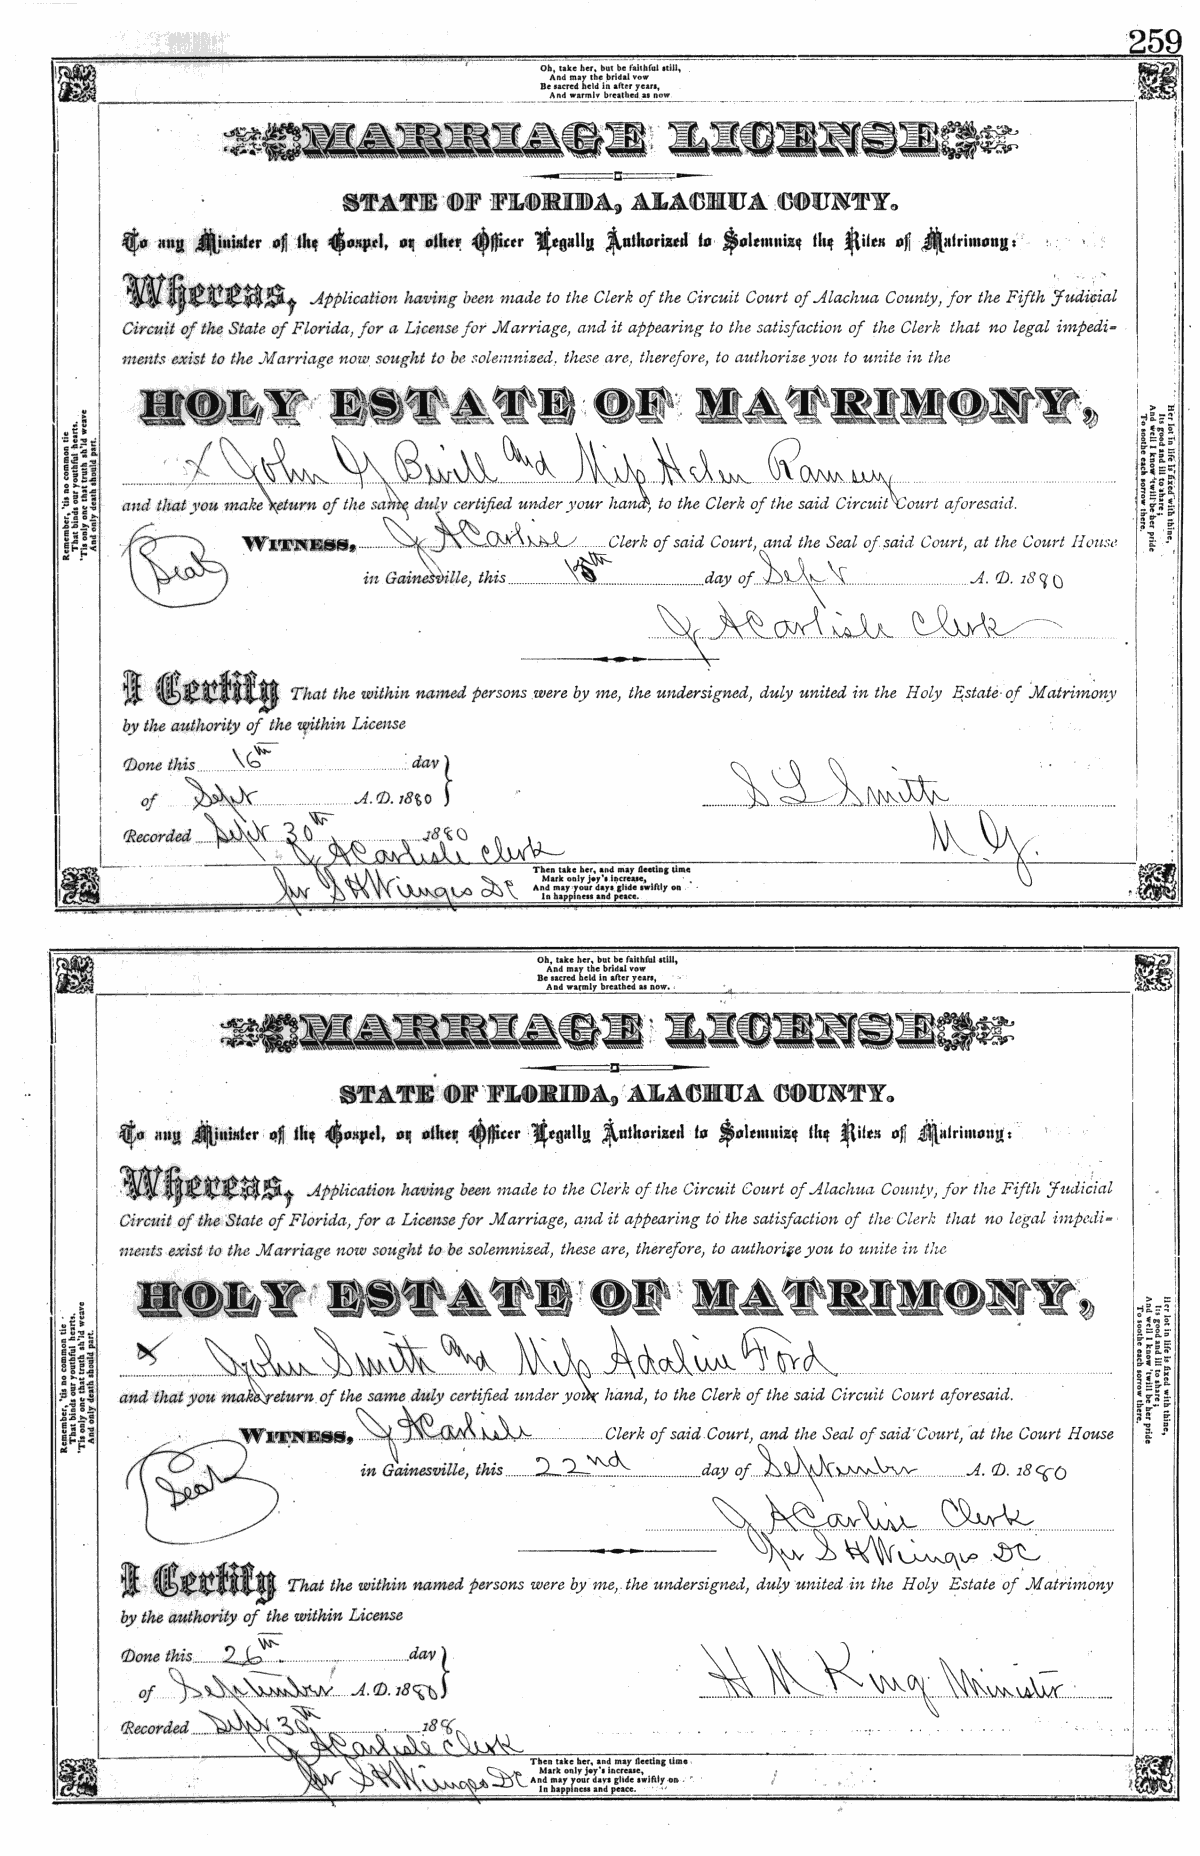 259
Oh, take her, but be faithful still,
And may the bridal vow
Be sacred held in after years,
And warmly breathed as now
MARRIAGE LICENSE
STATE OF FLORIDA, ALACHUA COUNTY.
To any Minister of the Gospel, or other Officer Legally Authorized to Solemnize the Rites of Matrimony:
Whereas, Application having been made to the Clerk of the Circuit Court of Alachua County, for the Fifth Judicial
Circuit of the State of Florida, for a License for Marriage, and it appearing to the satisfaction of the Clerk that no legal impedi=
ments exist to the Marriage now sought to be solemnized, these are, therefore, to authorize you to unite in the
HOLY ESTATE OF MATRIMONY,
x John G Bevill and Miss Helen Ramsey
and that you make return of the same duly certified under your hand, to the Clerk of the said Circuit Court aforesaid.
Seal
WITNESS, J A Carlisle Clerk of said Court, and the Seal of said Court, at the Court House
in Gainesville, this 15th day of Sept A. D. 1880
J A Carlisle Clerk
I Certify That the within named persons were by me, the undersigned, duly united in the Holy Estate of Matrimony
by the authority of the within License
Done this 16th day
of Sept A. D. 1880
S L Smith
Recorded Sept 30th 1880
M. G.
J A Carlisle Clerk
per S H Wienges DC
Then take her, and may fleeting time
Mark only joy's increase,
And may your days glide swiftly on
In happiness and peace.
Remember, 'tis no common tie
That binds our youthful hearts,
'Tis only one that truth sh'ld weave
And only death should part.
Her lot in life is fixed with thine,
Its good and ill to share;
And well I know 'twill be her pride
To soothe each sorrow there.
Oh, take her, but be faithful still,
And may the bridal vow
Be sacred held in after years,
And warmly breathed as now.
MARRIAGE LICENSE
STATE OF FLORIDA, ALACHUA COUNTY.
To any Minister of the Gospel, or other Officer Legally Authorized to Solemnize the Rites of Matrimony:
Whereas, Application having been made to the Clerk of the Circuit Court of Alachua County, for the Fifth Judicial
Circuit of the State of Florida, for a License for Marriage, and it appearing to the satisfaction of the Clerk that no legal impedi=
ments exist to the Marriage now sought to be solemnized, these are, therefore, to authorize you to unite in the
HOLY ESTATE OF MATRIMONY,
x John Smith and Miss Adaline Ford
and that you make return of the same duly certified under your hand, to the Clerk of the said Circuit Court aforesaid.
Seal
WITNESS, J A Carlisle Clerk of said Court, and the Seal of said Court, at the Court House
in Gainesville, this 22nd day of September A. D. 1880
J A Carlisle Clerk
per S H Wienges DC
I Certify That the within named persons were by me, the undersigned, duly united in the Holy Estate of Matrimony
by the authority of the within License
Done this 26th day
of September A. D. 1880
H M King Minister
Recorded Sept 30th 188
J A Carlisle Clerk
per S H Wienges DC
Then take her, and may fleeting time
Mark only joy's increase,
And may your days glide swiftly on
In happiness and peace.
Remember, 'tis no common tie
That binds our youthful hearts.
'Tis only one that truth sh'ld weave
And only death should part.
Her lot in life is fixed with thine,
Its good and ill to share;
And well I know 'twill be her pride
To soothe each sorrow there.